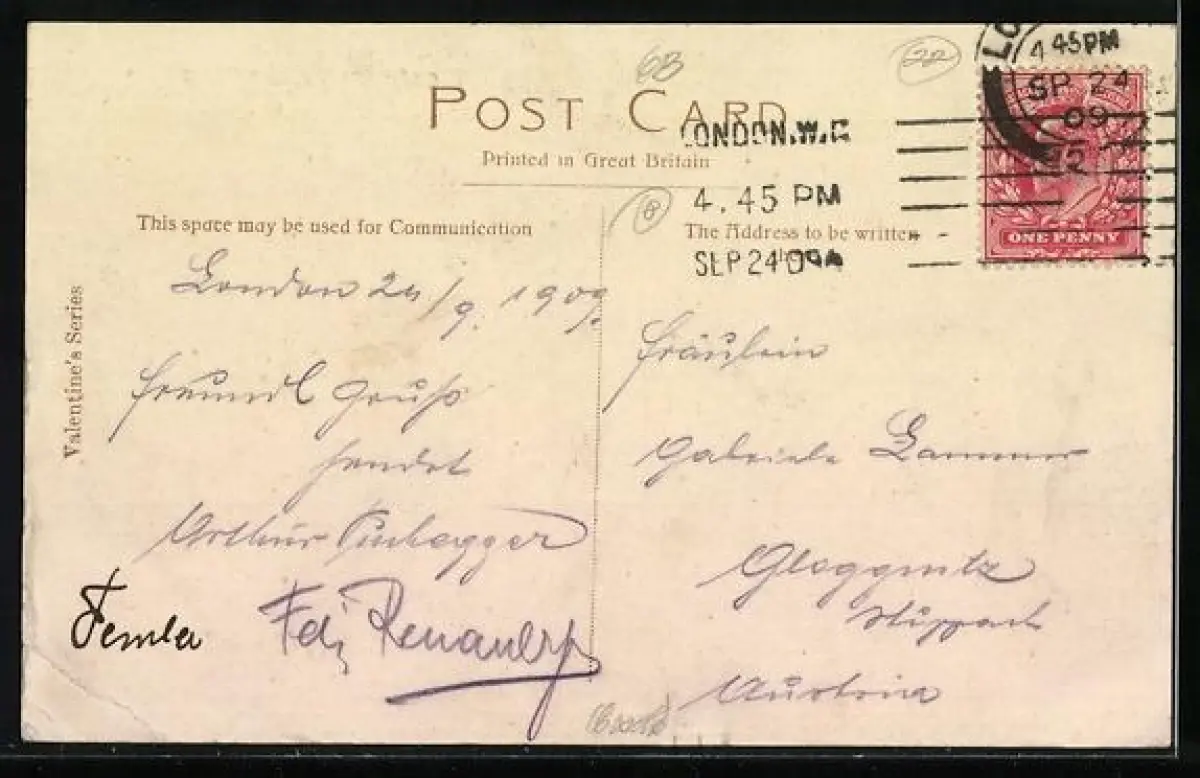 68
22
POST CARD
Printed in Great Britain
LONDON.W.C
4.45 PM
SEP 24 09
4 45PM
SP 24
09
ONE PENNY
8
This space may be used for Communication
The Address to be written
Valentine's Series
London 24/9. 1909.
Freundl Gruß
sendet
Arthur
Fräulein
Gabriele
Gloggnitz
Stuppach
Austria